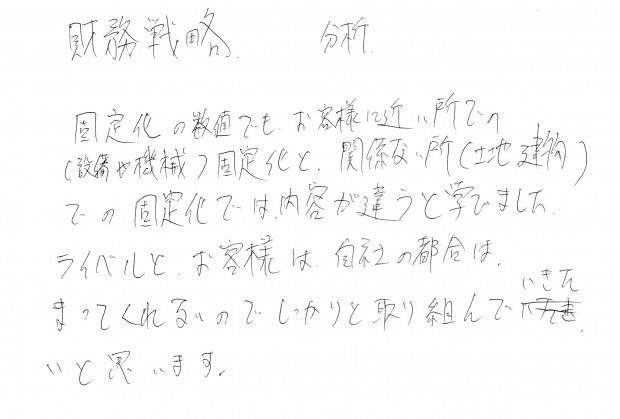 財務戦略、 分析
固定化の数値でも、お客様に近い所での
(設備や機械)固定化と、関係ない所(土地建物)
での固定化では、内容が違うと学びました。
ライバルと、お客様は、自社の都合は、
まってくれないのでしっかりと取り組んでいきた
いと思います。